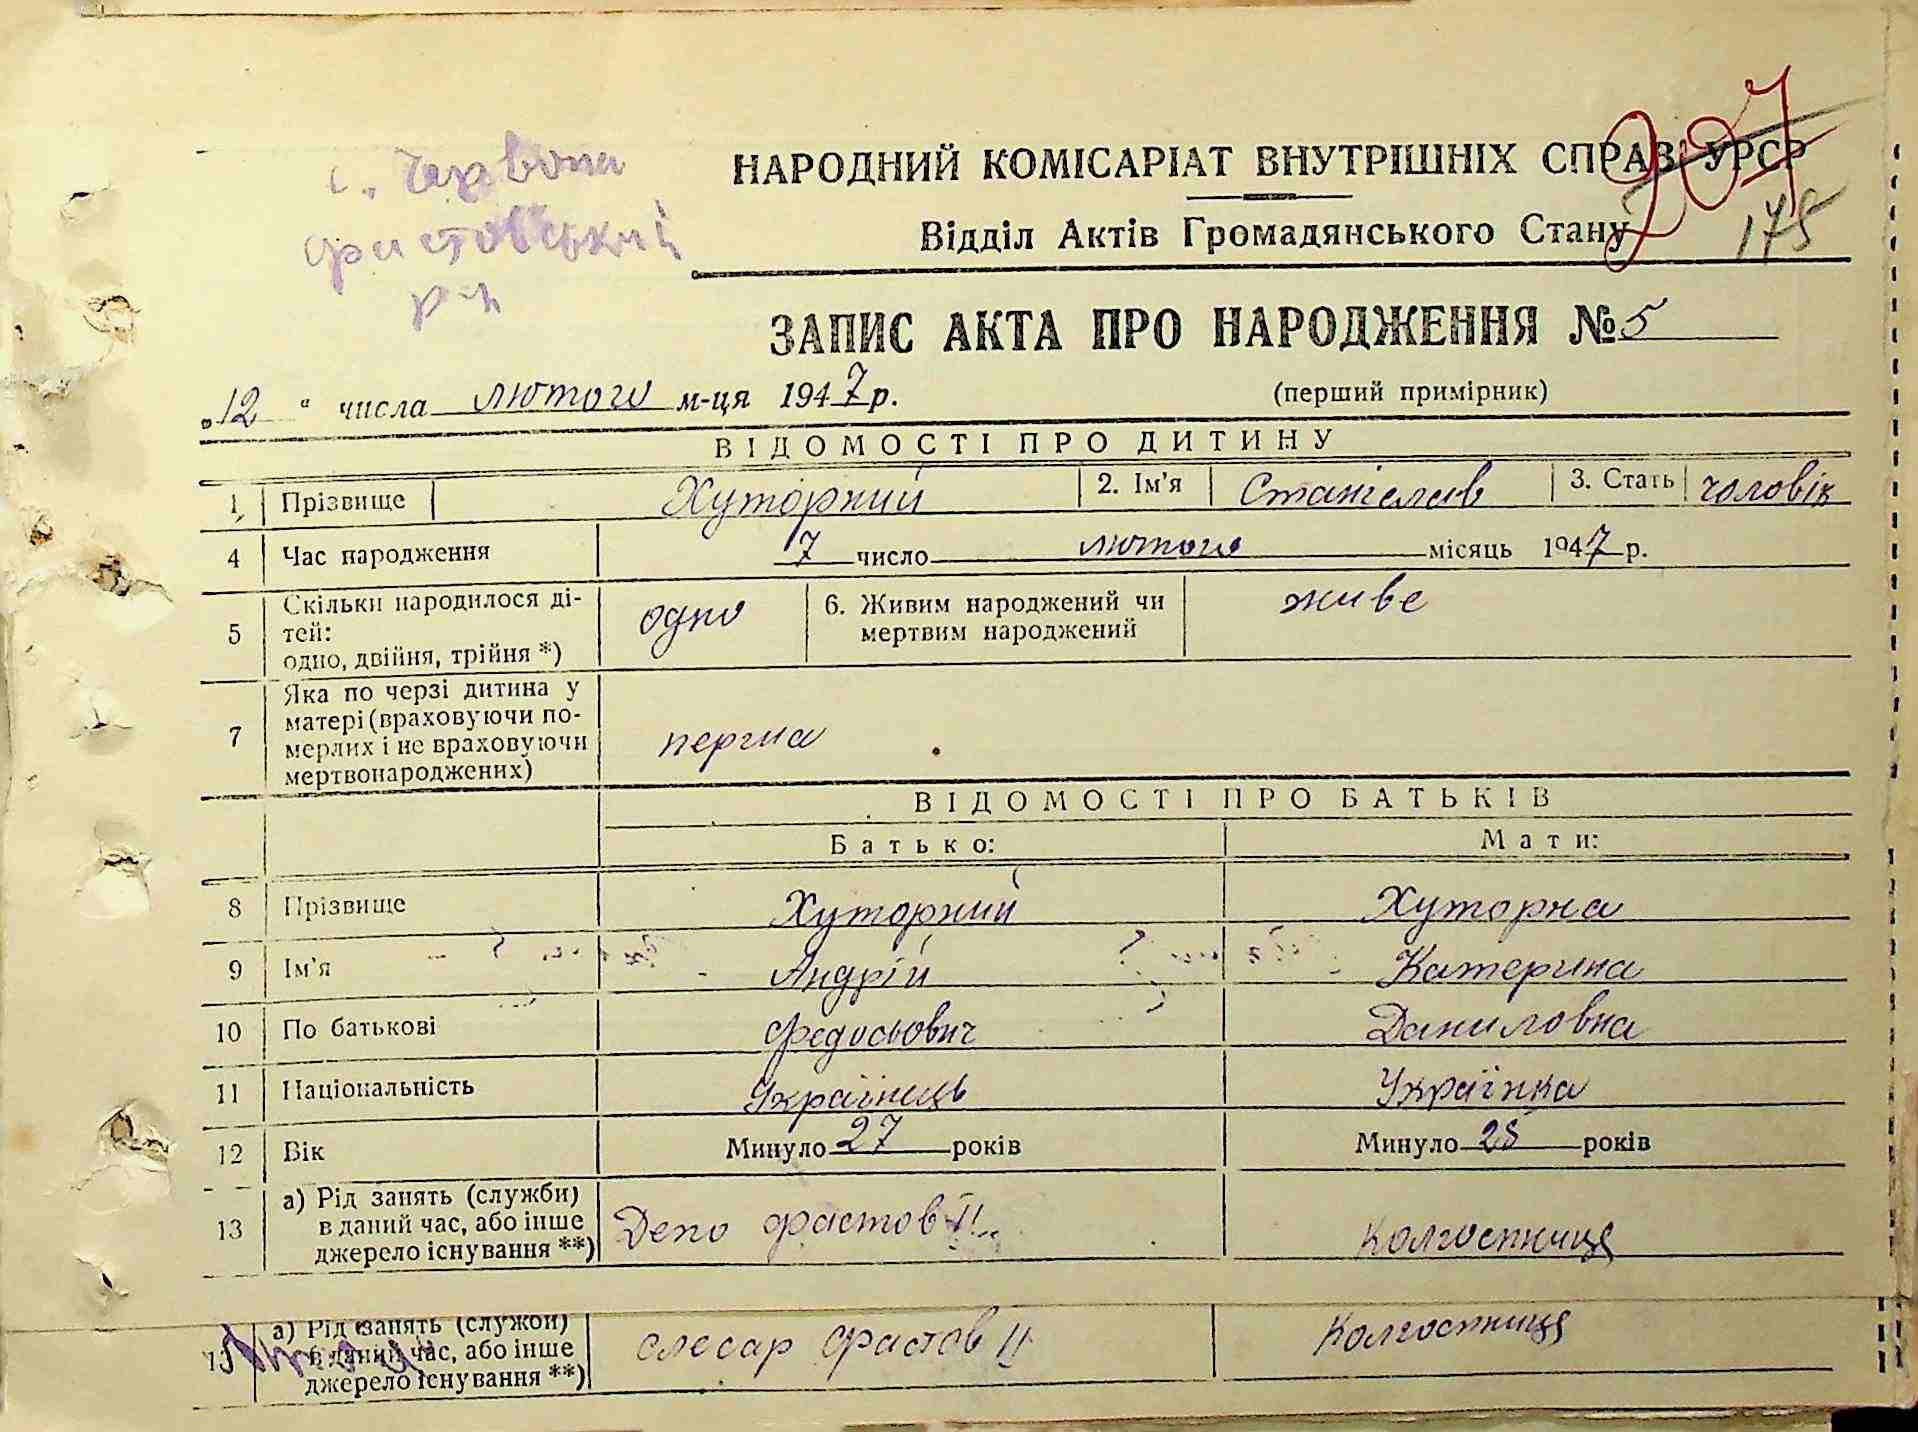 207
с. Червона
НАРОДНИЙ КОМІСАРІАТ ВНУТРІШНІХ СПРАВ УРСР
фастовський
Відділ Актів Громадянського Стану
175
р-н
ЗАПИС АКТА ПРО НАРОДЖЕННЯ № 5
„12“ числа лютого м-ця 1947 р.
(перший примірник)
ВІДОМОСТІ ПРО ДИТИНУ
1 Прізвище Хуторний 2. Ім'я Станіслав 3. Стать чоловік
4 Час народження 7 число лютого місяць 1947 р.
5 Скільки народилося ді-
тей:
одно, двійня, трійня *) одно
6. Живим народжений чи
мертвим народжений живе
7 Яка по черзі дитина у
матері (враховуючи по-
мерлих і не враховуючи
мертвонароджених) перша
ВІДОМОСТІ ПРО БАТЬКІВ
Батько: Мати:
8 Прізвище Хуторний Хуторна
9 Ім'я Андрій Катерина
10 По батькові Федосьович Даниловна
11 Національність Українець Українка
12 Вік Минуло 27 років Минуло 25 років
13 а) Рід занять (служби)
в даний час, або інше
джерело існування **) Депо фастов II Колгоспниця
13 а) Рід занять (служби)
в даний час, або інше
джерело існування **) слесар Фастов II Колгоспниця